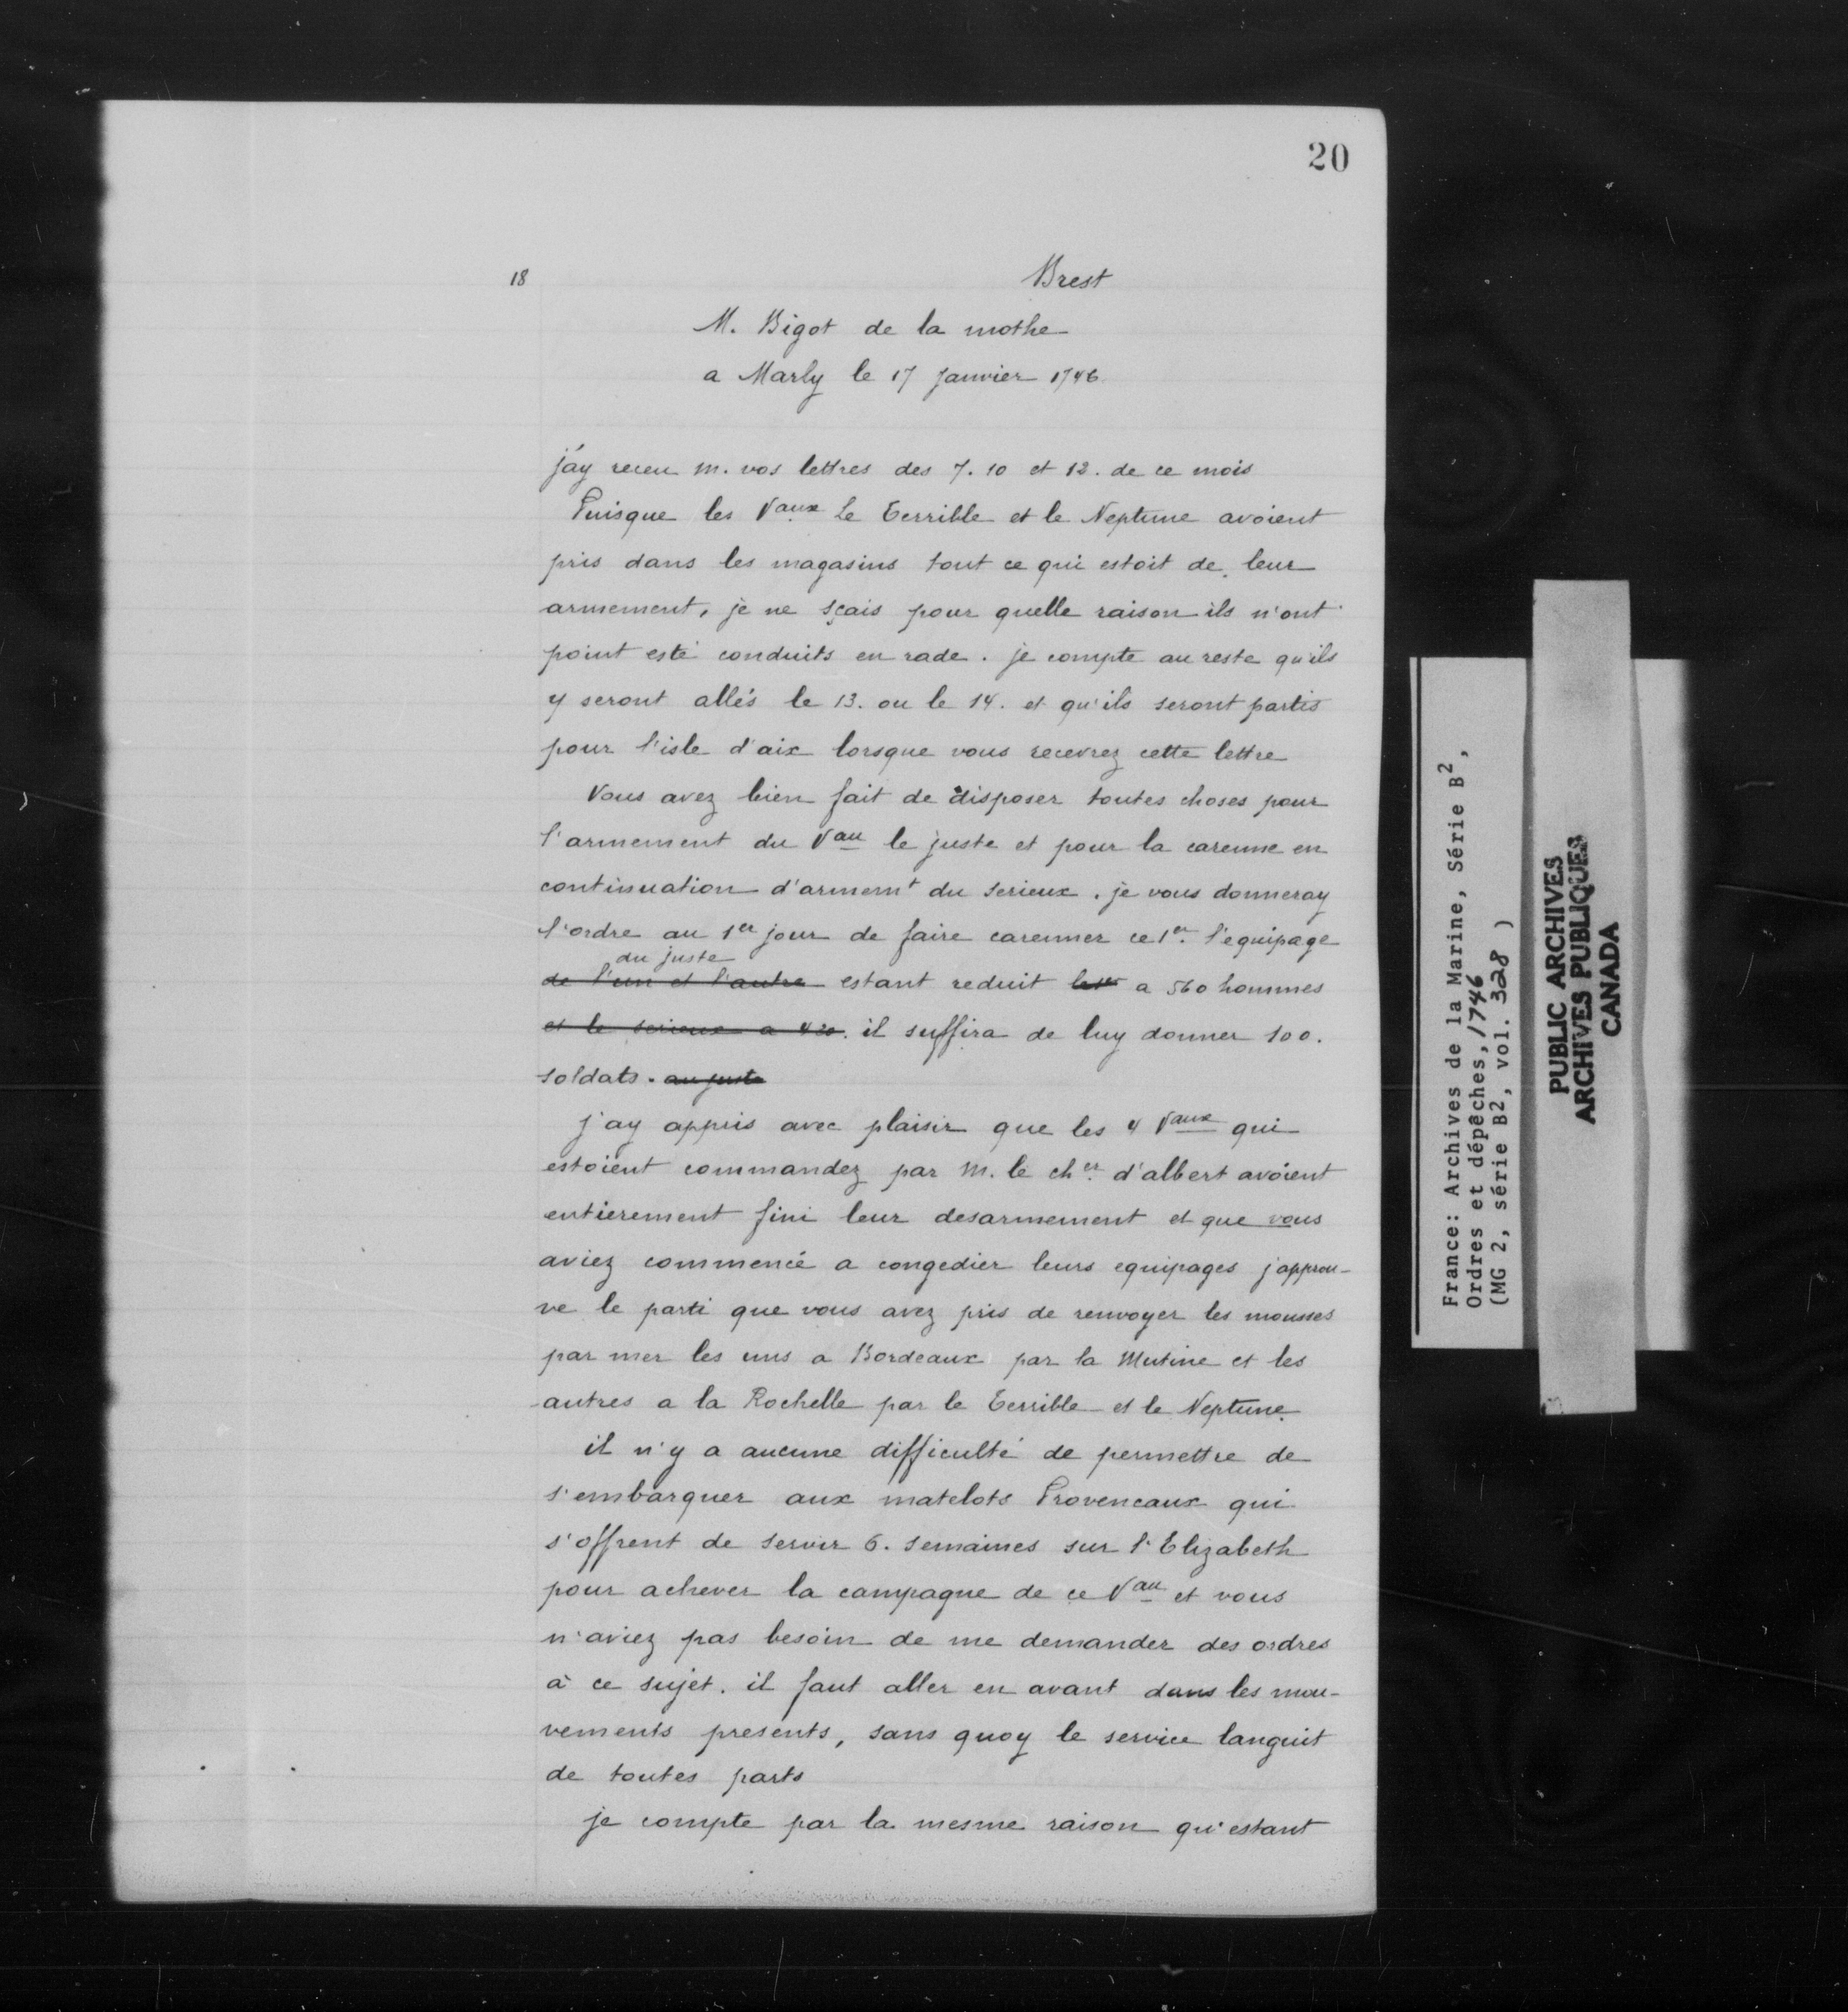 20
18
Brest
M. Bigot de la mothe
a Marly le 17 Janvier 1746
j'ay receu m. vos lettres des 7. 10 et 12. de ce mois
Puisque les Vaux Le Terrible et le Neptune avoient
pris dans les magasins tout ce qui estoit de leur
armement, je ne sçais pour quelle raison ils n'ont
point esté conduits en rade. je compte au reste qu'ils
y seront allés le 13. ou le 14. et qu'ils seront partis
pour l'isle d'aix lorsque vous recevrez cette lettre
Vous avez bien fait de disposer toutes choses pour
l'armement du Vau le juste et pour la carenne en
continuation d'armemt du serieux. je vous donneray
l'ordre au 1er jour de faire carenner ce 1er. l'equipage
du juste
de l'un et l'autre estant reduit a 560 hommes
et le serieux a 420. il suffira de luy donner 100.
soldats. au juste
j'ay appris avec plaisir que les 4 Vaux qui
estoient commandez par m. le cher. d'albert avoient
entierement fini leur desarmement et que vous
aviez commencé a congedier leurs equipages j'approu-
ve le parti que vous avez pris de renvoyer les mousses
par mer les uns a Bordeaux par la Mutine et les
autres a la Rochelle par le Terrible et le Neptune.
il n'y a aucune difficulté de permettre de
s'embarquer aux matelots Provencaux qui
s'offrent de servir 6. semaines sur l'Elizabeth
pour achever la campagne de ce Vau et vous
n'aviez pas besoin de me demander des ordres
à ce sujet. il faut aller en avant dans les mou-
vements presents, sans quoy le service languit
de toutes parts
je compte par la mesme raison qu'estant
France: Archives de la Marine, Série B2,
Ordres et dépêches, 1746
(MG 2, série B2, vol. 328 )
PUBLIC ARCHIVES
ARCHIVES PUBLIQUES
CANADA